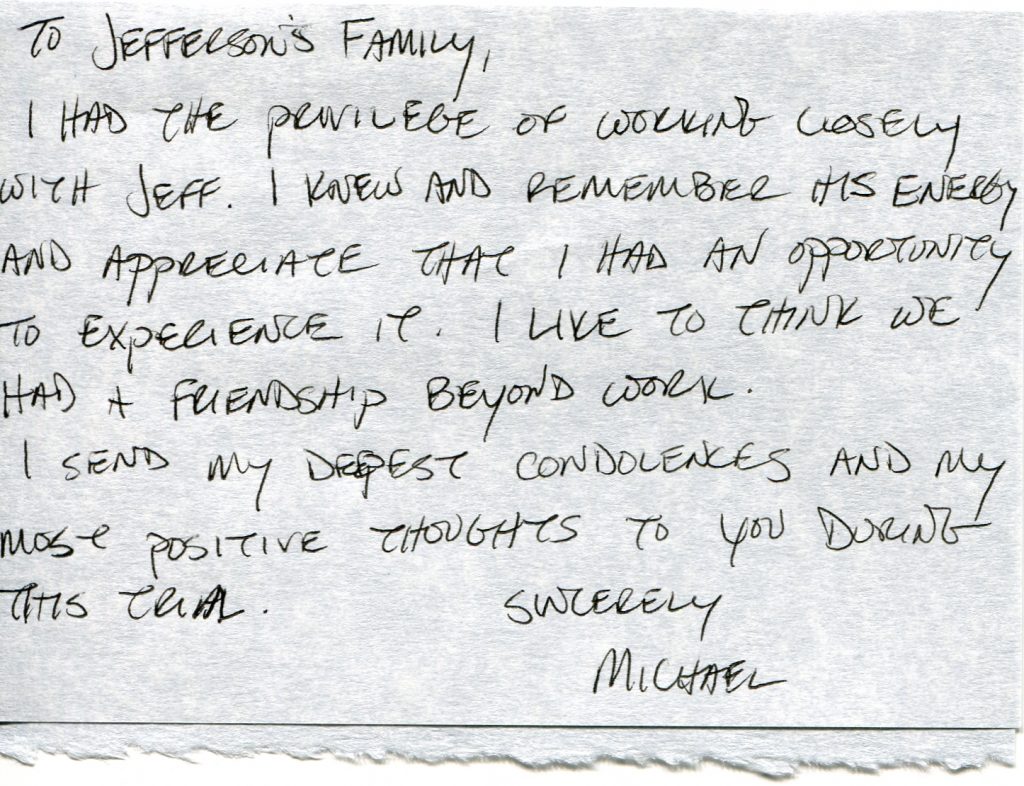 To Jefferson's Family,
I had the privilege of working closely
with Jeff. I knew and remember his energy
and appreciate that I had an opportunity
to experience it. I like to think we
had a friendship beyond work.
I send my deepest condolences and my
most positive thoughts to you during
this trial. Sincerely
Michael